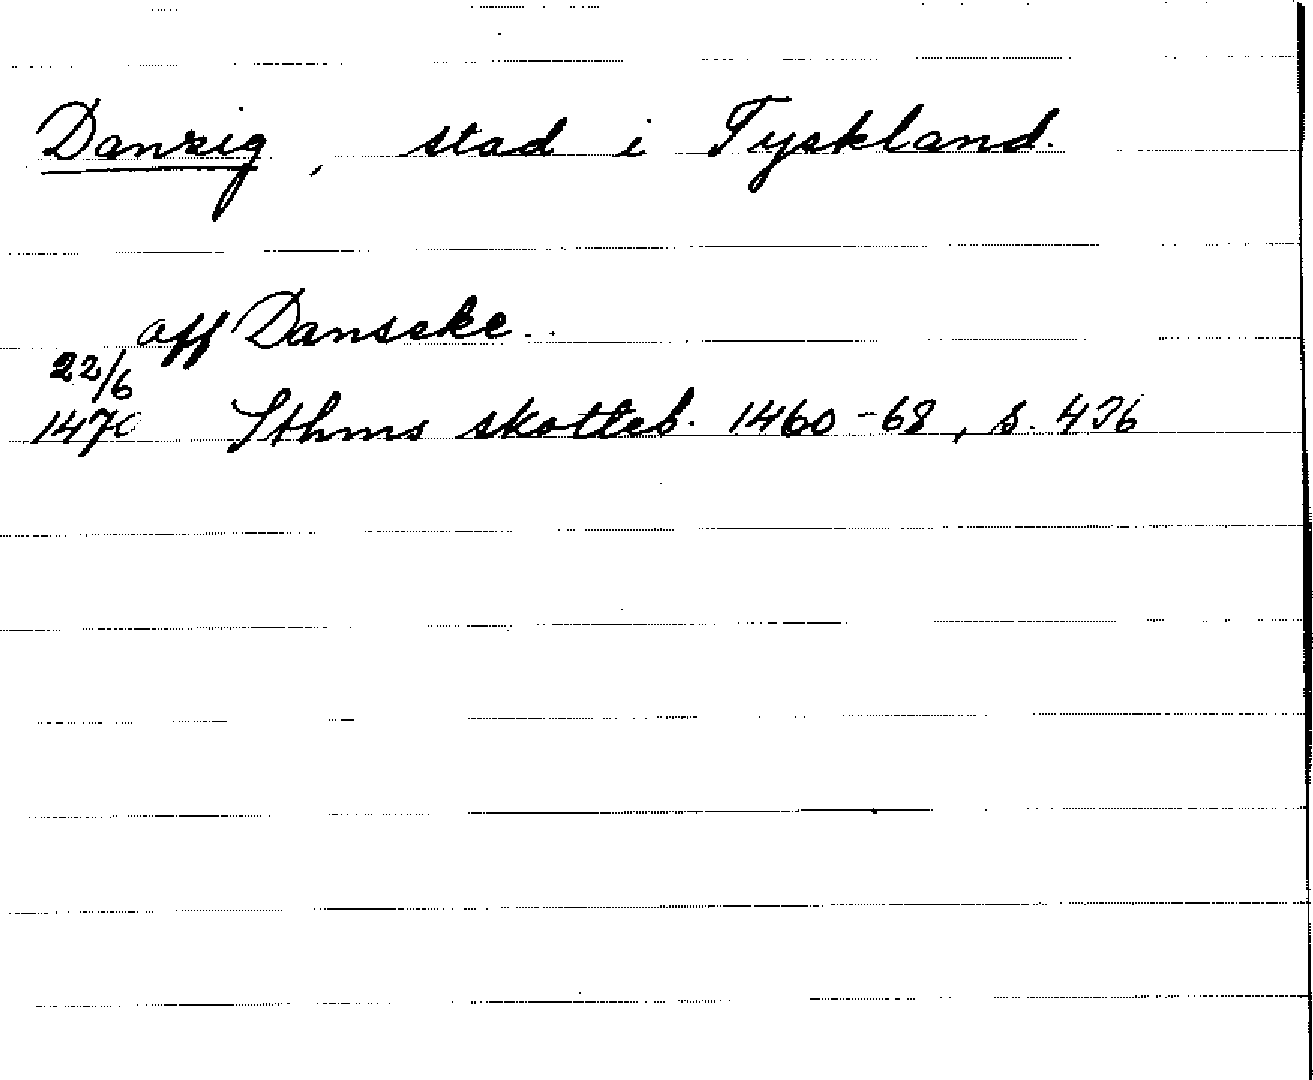 Danzig, stad i Tyskland.
aff Danseke..
22/6
1470 Sthms skotteb. 1460-68, s. 436